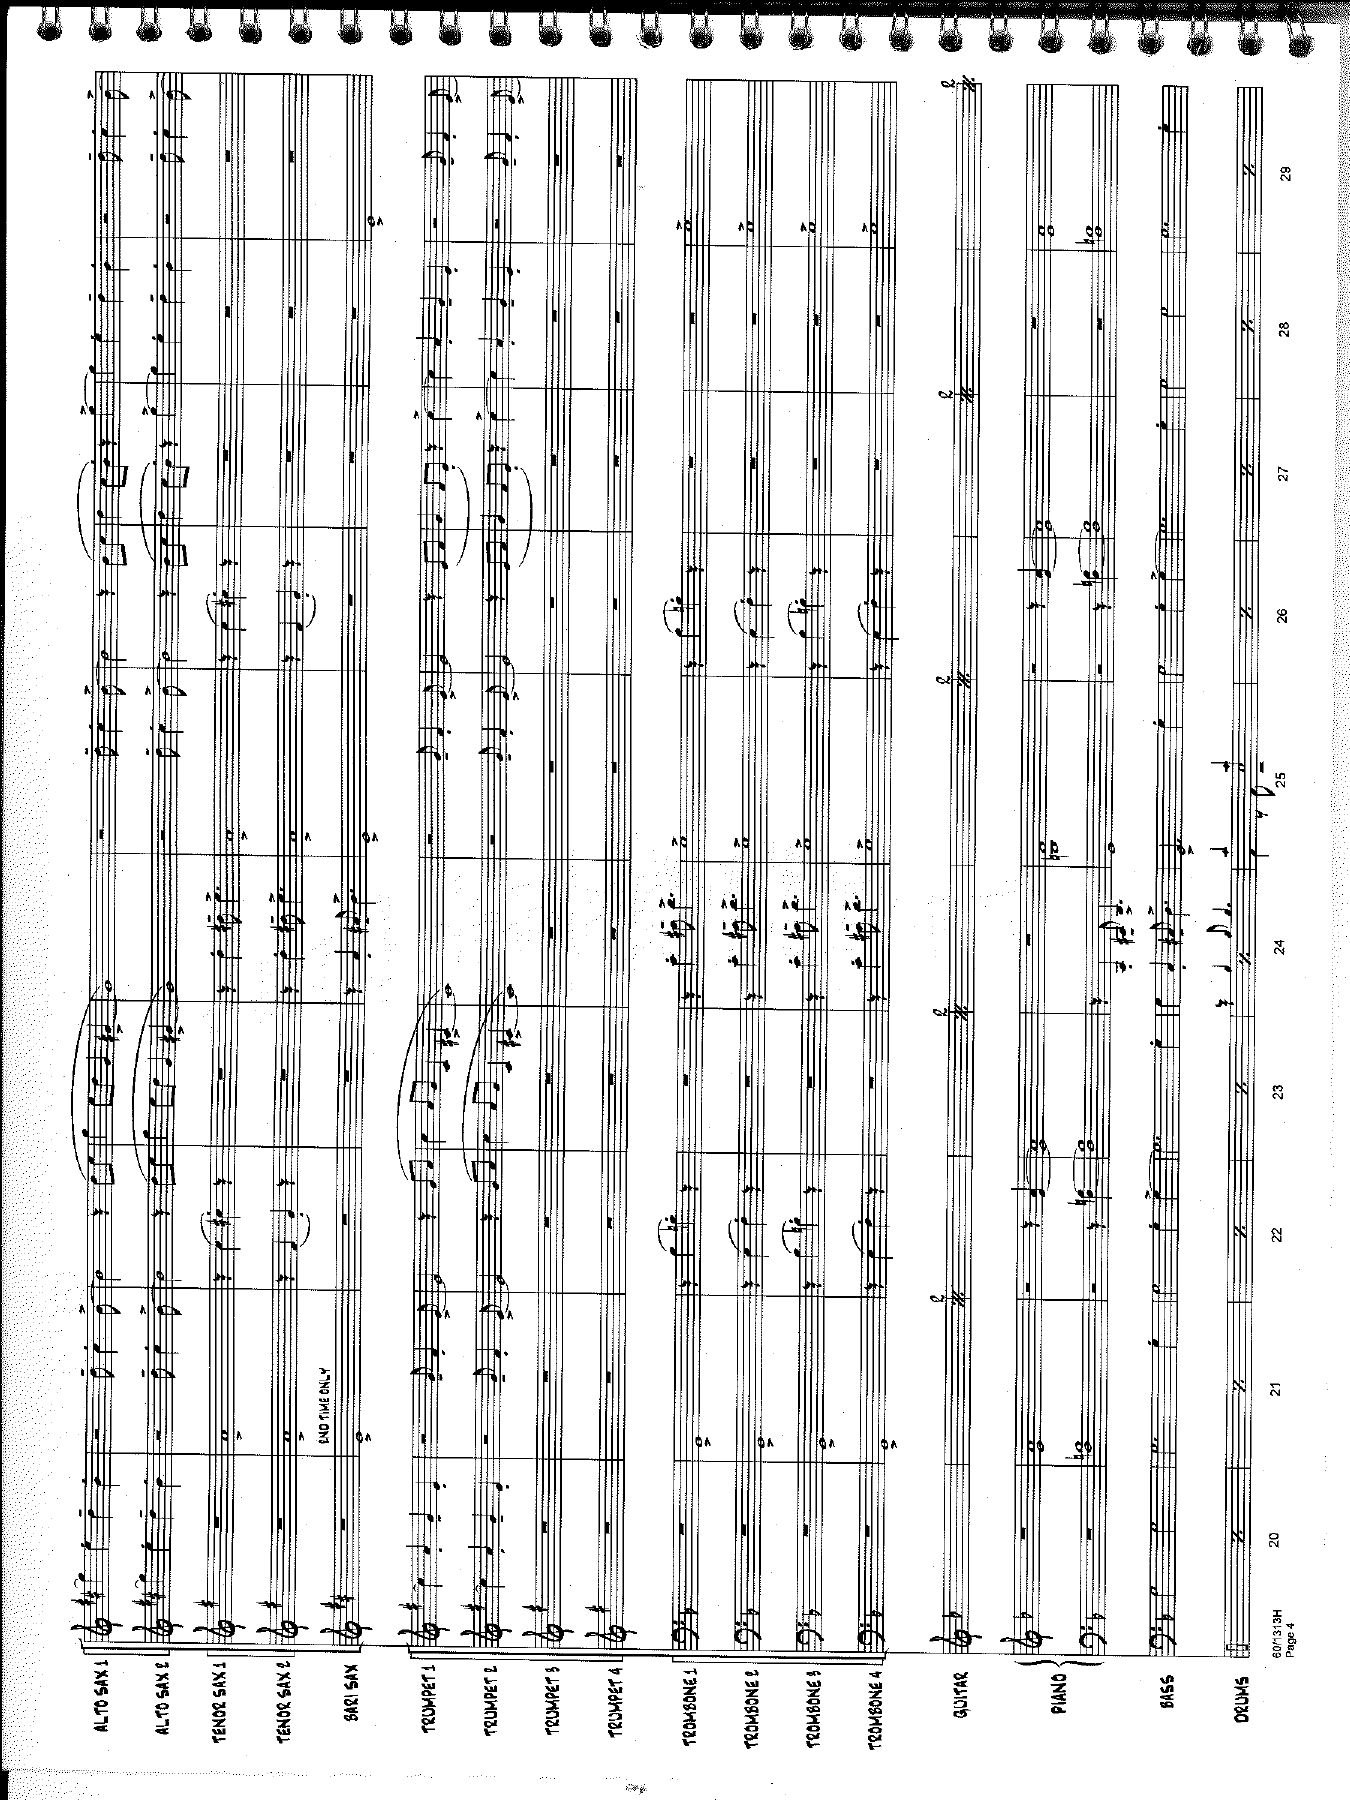 ALTO SAX 1
ALTO SAX 2
TENOR SAX 1
TENOR SAX 2
BARI SAX
2ND TIME ONLY
TRUMPET 1
TRUMPET 2
TRUMPET 3
TRUMPET 4
TROMBONE 1
TROMBONE 2
TROMBONE 3
TROMBONE 4
GUITAR
2 2 2 2 2 2
PIANO
BASS
DRUMS
20 21 22 23 24 25 26 27 28 29
60/1313H
Page 4